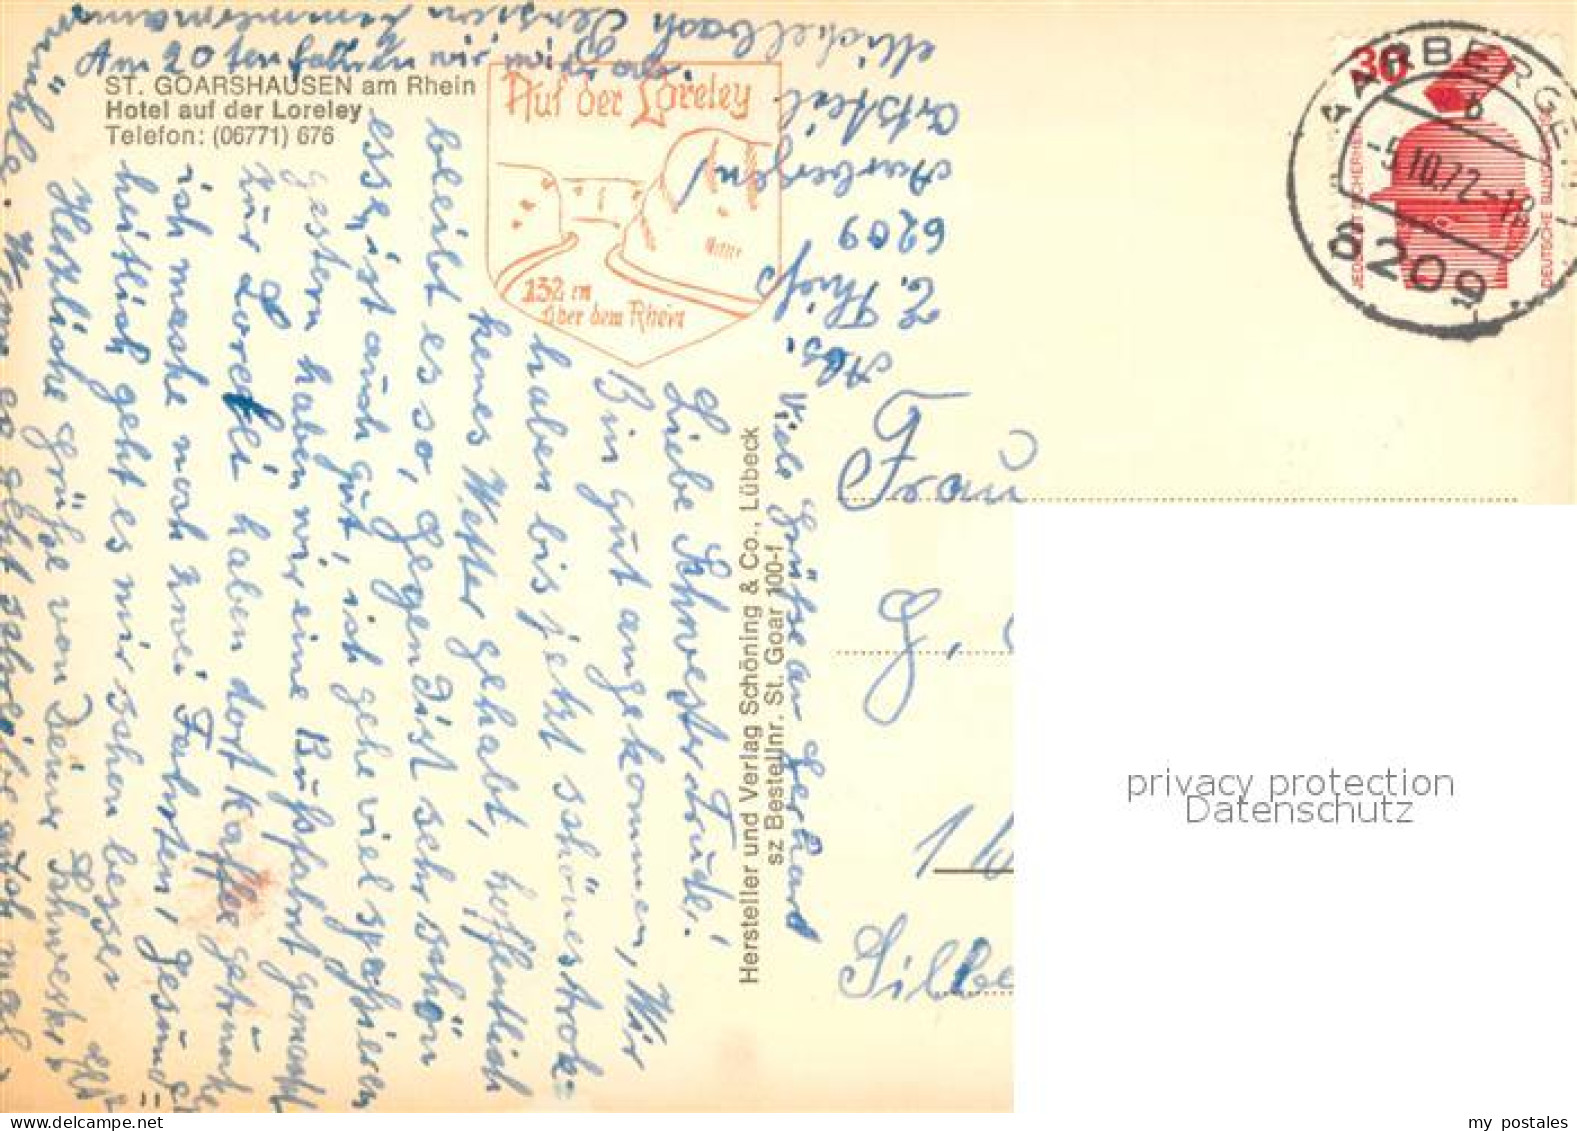 ST. GOARSHAUSEN am Rhein
Hotel auf der Loreley
Telefon: (06771) 676
Auf der Loreley
132 m
über dem Rhein
Liebe Schwester Trude!
Bin gut angekommen, Wir
haben bis jetzt schönes trok-
kenes Wetter gehabt, hoffentlich
bleibt es so, Gegend ist sehr schön
essen ist auch gut, ich gehe viel spazieren
gestern haben wir eine Busfahrt gemacht
zur Loreley haben dort Kaffee getrunken
ich mache noch zwei Fahrten, gesund
heitlich geht es mir schon besser
Herzliche Grüße von Deiner Schwester
Wenn es geht schreibe auch mal
Am 20ten fahren wir
Viele Grüße an Gerhard
Abs.
6209
Aarbergen
Ortsteil
Michelbach
Hersteller und Verlag Schöning & Co., Lübeck
sz Bestellnr. St. Goar 100-1
30
DEUTSCHE BUNDESPOST
AARBERGEN 1
b
-5.10.72-18
6209
Frau
G.
1
privacy protection
Datenschutz
my postales